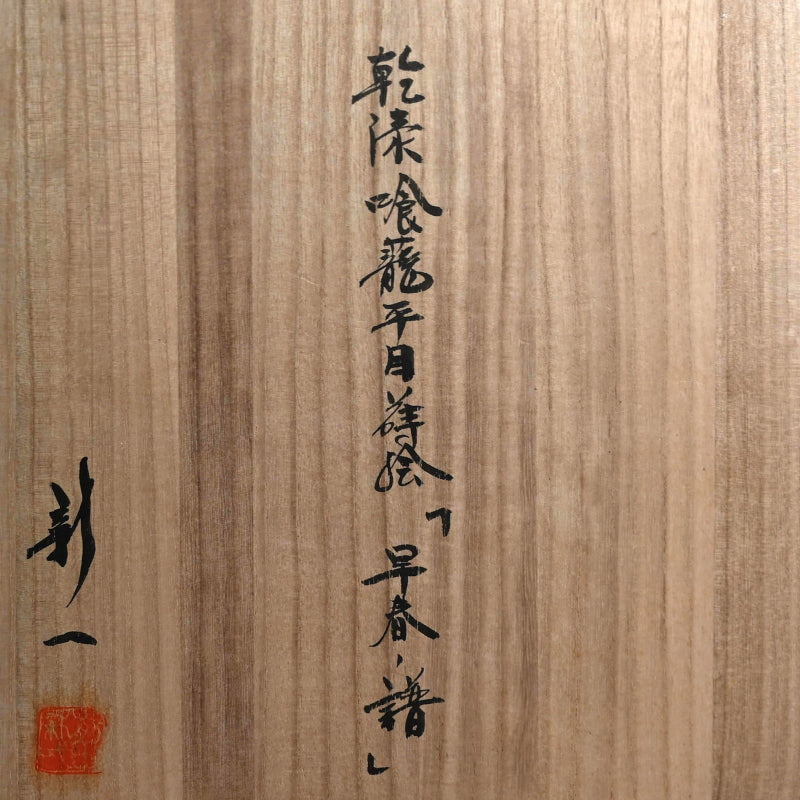 乾漆喰籠平目蒔絵「早春ノ譜」
新一